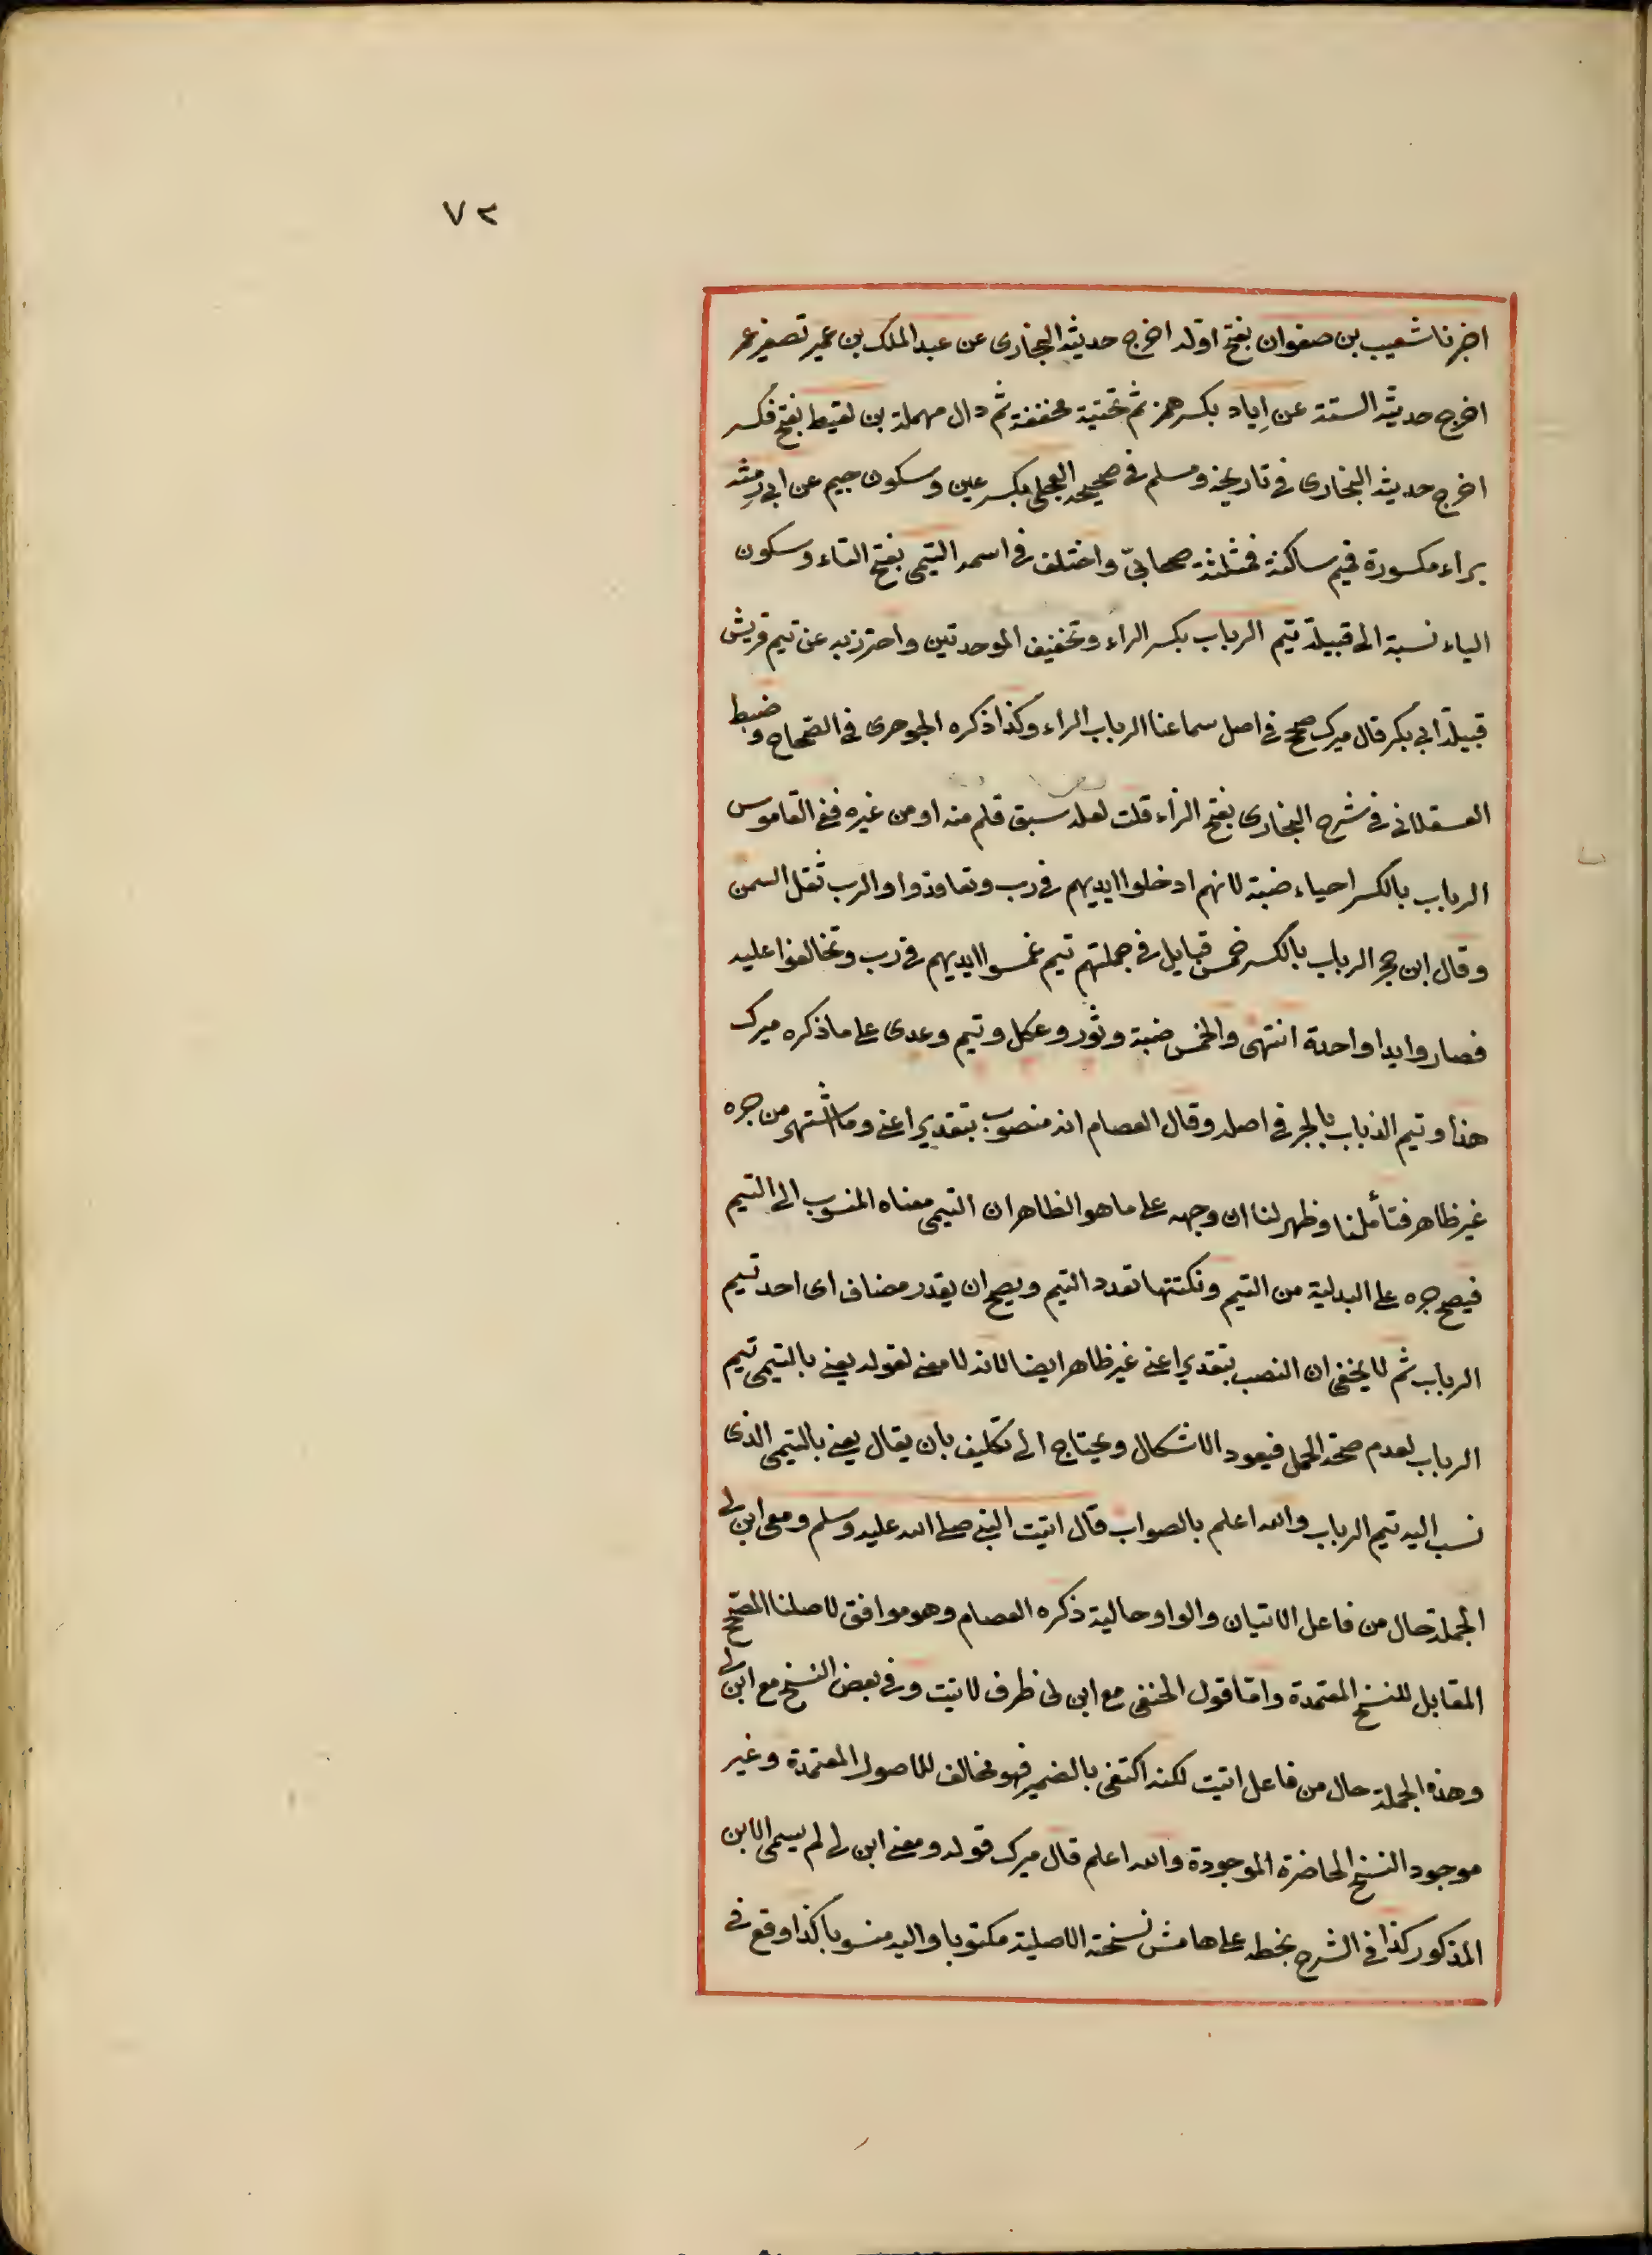 ٧٢
اخبرنا شعيب بن صفوان بفتح اوله اخرج حديثه البخارى عن عبد الملك بن عمير تصغير عمر
اخرج حديثه الستة عن إياد بكسر همز ثم تحتية مخففة ثم دال مهملة بن لقيط بفتح فكسر
اخرج حديثه البخارى فى تاريخه ومسلم فى صحيحه العجلى بكسر عين وسكون جيم عن ابى رمثه
براء مكسورة فميم ساكنة فمثلثة صحابىّ واختلف فى اسمه التيمى بفتح التاء وسكون
الياء نسبة الى قبيلة تيم الرباب بكسر الراء وتخفيف الموحدتين واحترز به عن تيم قريش
قبيلة ابى بكر قال ميرك صحح فى اصل سماعنا الرباب الراء وكذا ذكره الجوهرى فى الصحاح وضبط
العسقلانى فى شرح البخارى بفتح الراء قلت لعله سبق قلم منه او من غيره ففى القاموس
الرباب بالكسر احياء ضبة لانهم ادخلوا ايديهم فى رب وتعاقدوا والرب ثفل السمن
وقال ابن حجر الرباب بالكسر خمس قبايل فى جملتهم تيم غمسوا ايديهم فى رب وتحالفوا عليه
فصاروا يدا واحدة انتهى والخمس ضبة وثور وعكل وتيم وعدى على ما ذكره ميرك
هذا وتيم الذباب بالجر فى اصله وقال العصام انه منصوب بتقدير اعنى وما اشتهر من جره
غير ظاهر فتأملنا وظهر لنا ان وجهه على ما هو الظاهر ان التيمى معناه المنسوب الى التيم
فيصح جره على البدلية من التيم ونكتتها تعدد التيم ويصح ان يقدر مضاف اى احد تيم
الرباب ثم لا يخفى ان النصب بتقدير اعنى غير ظاهر ايضا لانه لا معنى لقوله يعنى بالتيمى تيم
الرباب لعدم صحة الحمل فيعود الاشكال ويحتاج الى تكليف بان يقال يعنى بالتيمى الذى
نسب اليه تيم الرباب والله اعلم بالصواب قال اتيت النبى صلى الله عليه وسلم ومعى ابن لى
الجملة حال من فاعل الاتيان والواو حالية ذكره العصام وهو موافق لاصلنا المصحح
المقابل للنسخ المعتمدة واما قول الحنفى مع ابن لى ظرف لاتيت وفى بعض النسخ مع ابن لى
وهذه الجملة حال من فاعل اتيت لكنه اكتفى بالضمير فهو مخالف للاصول المعتمدة وغير
موجود النسخ الحاضرة الموجودة والله اعلم قال ميرك قوله ومعى ابن لى لم يسمى الابن
المذكور كذا فى الشرح بخطه على هامش نسخته الاصلية مكتوبا واليه منسوبا كذا وقع فى